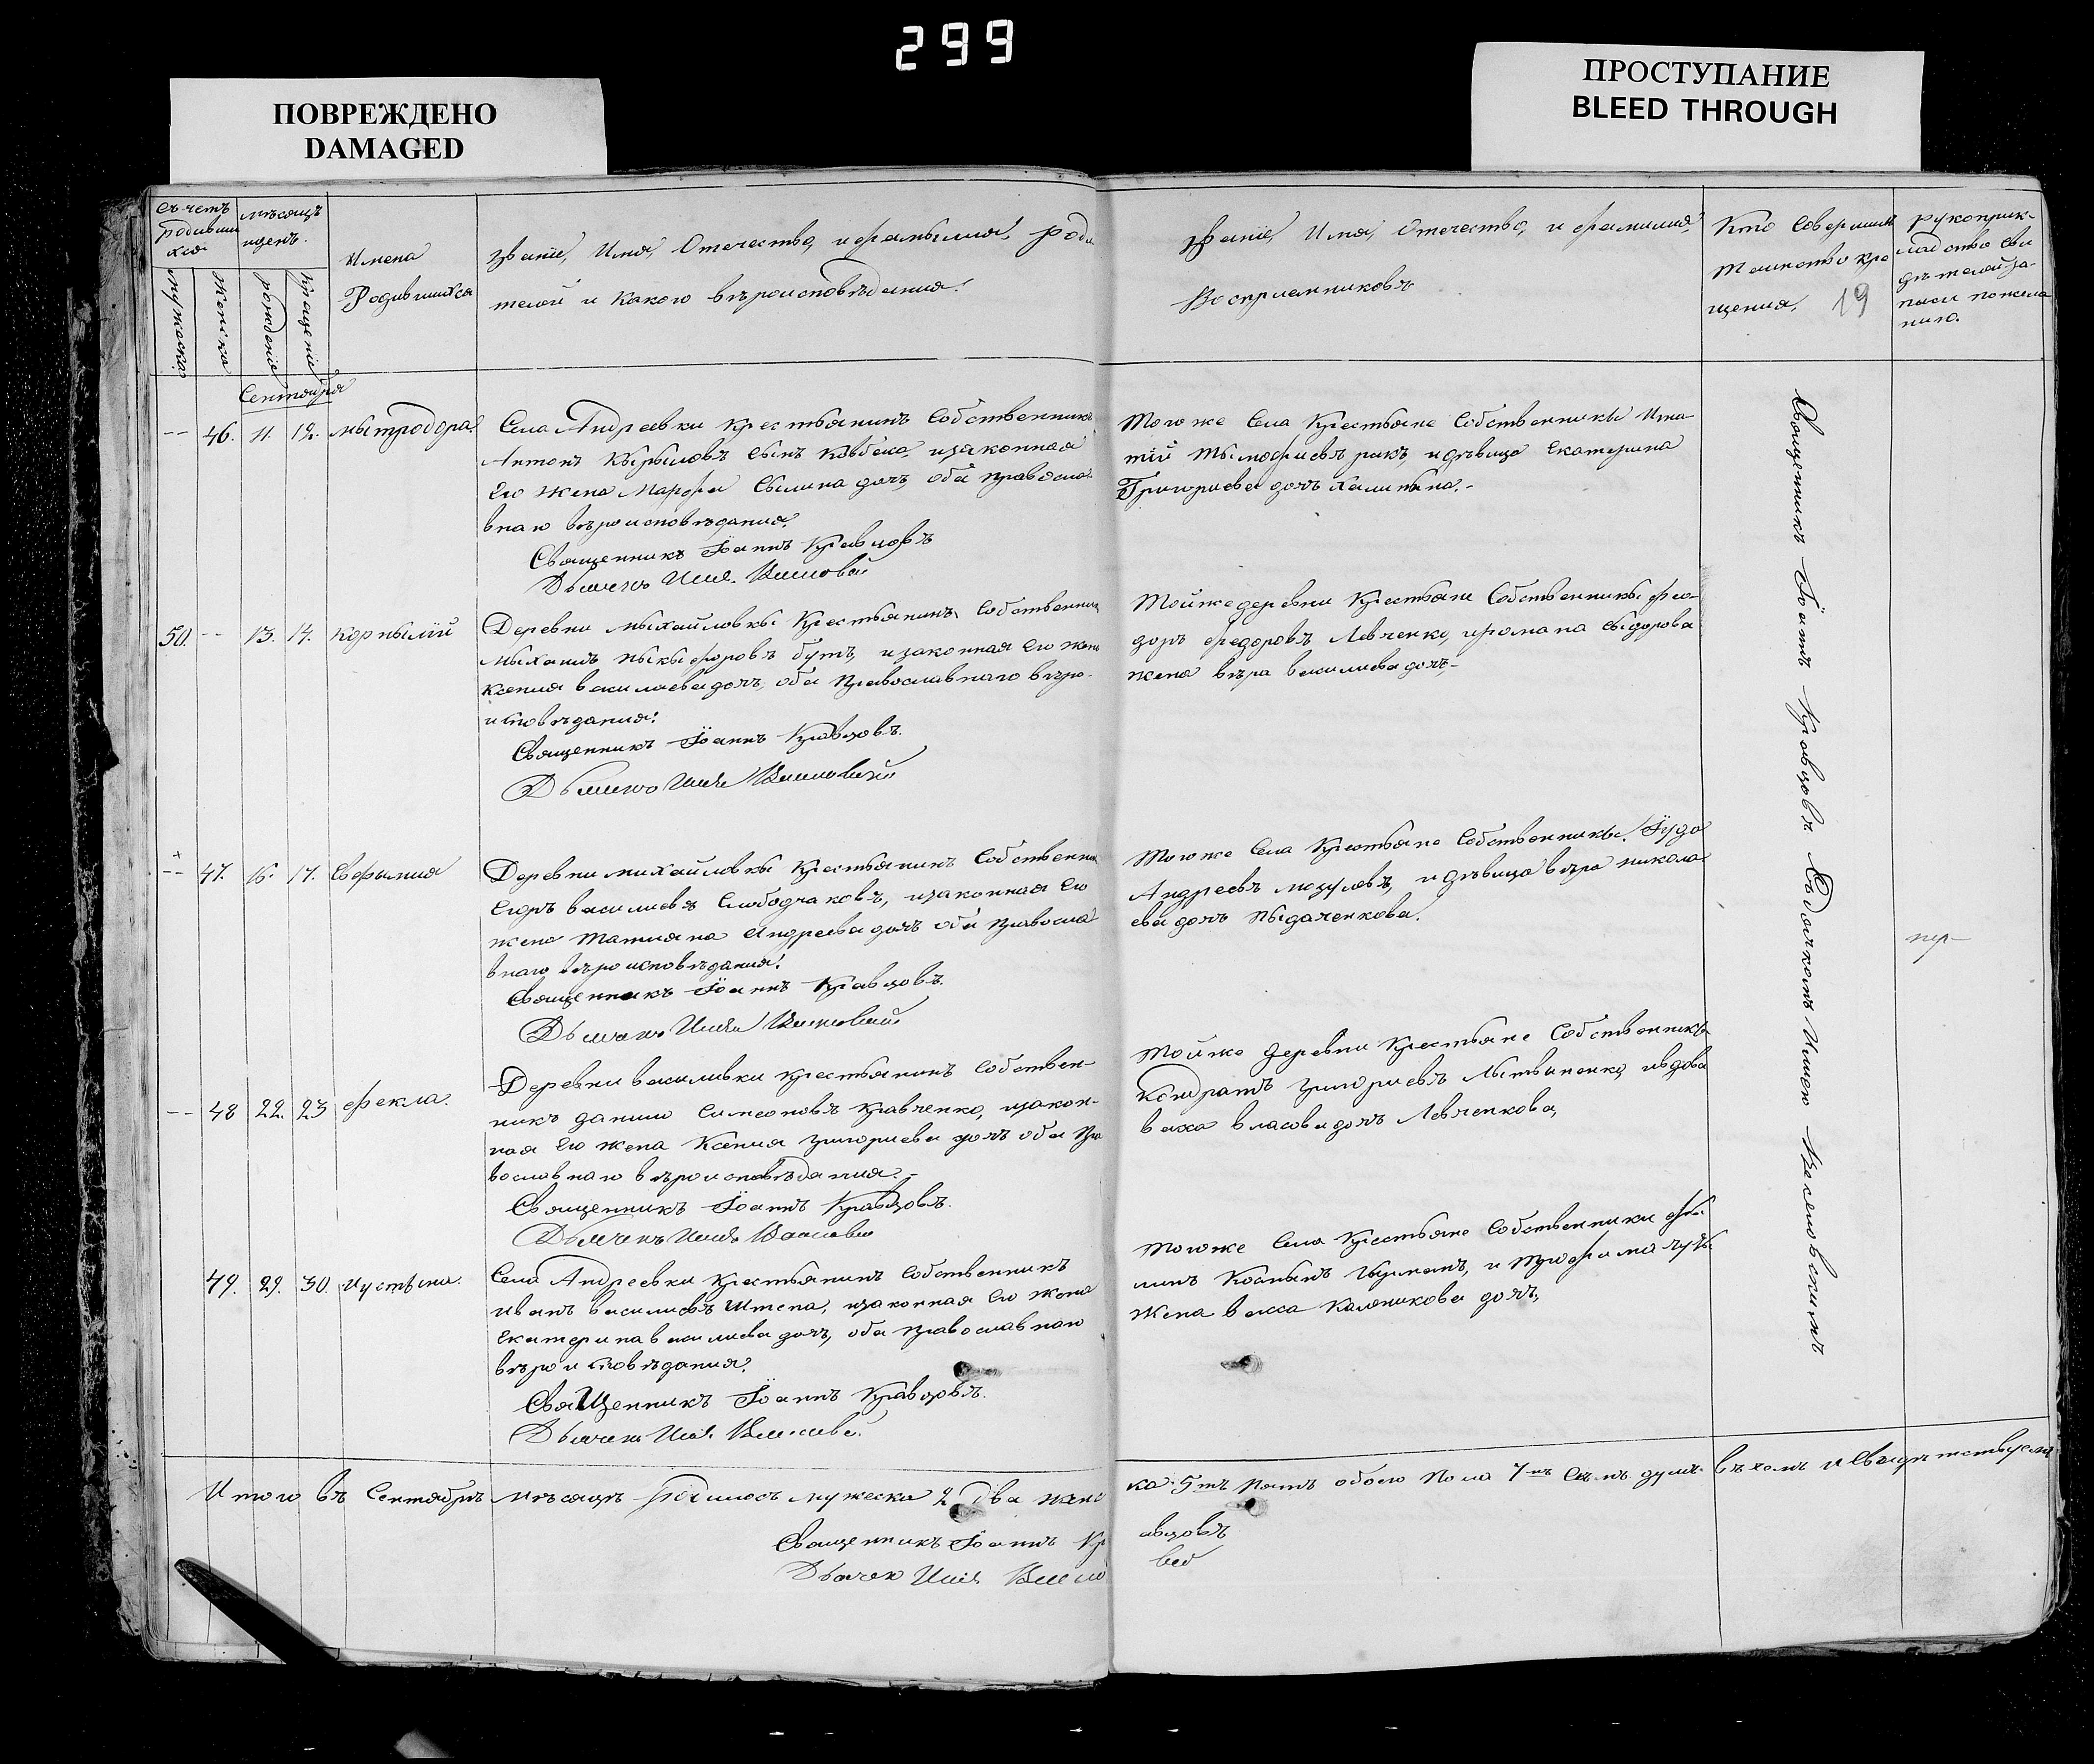 299
ПОВРЕЖДЕНО
DAMAGED
ПРОСТУПАНИЕ
BLEED THROUGH
Съчетъ
родивши
хся
мѣсяцъ
иденъ.
мужеска
женска
рожденіе
крещеніе
Имена
Родившихся
Званіе, Имя, Отечество, и фамылыя, роди
телей и какого вѣроисповѣдания.
Званіе, Имя, Отечество, и фамилия,
Восприемниковъ
Кто Совершилъ
Таинство кре
щения, 19
рукоприк-
ладство сви
дѣтелейза-
писи пожела
нию.
Сентоября
-- 46. 11. 12. мытродора.
Села Андреевки Крестьянинъ Собственникъ
Антонъ Кырыловъ сынъ изаконная
Его жена Марфа дочъ, оба Правосла-
внаго вѣроисповѣдания.
Священникъ Іоаннъ Кравцовъ
Дьячекъ Илія
Тогоже Села Крестьяне Собственникы Игна-
тій Тымофиевъ идѣвица Екатерина
Григориева дочъ Калинына.-
50. -- 13. 14. Корнылій
Деревни Мыхайловкы Крестьянинъ Собственникъ
Мыхаилъ Ныкыфоровъ бутъ, изаконная Его жена
Ксения василиевадочъ, оба Православнаго вѣро-
исповѣдания.
Священникъ Іоаннъ Кравцовъ.
Дьячекъ Илія
Тойжедеревни Крестьяне Собственникы фео-
доръ федоровъ Левченко, иромана сыдорова
жена вѣра василиевадочъ,-
-- 47. 16. 17. Евфымия
Деревни михайловкы Крестьянинъ Собственни
Егоръ василиевъ Слободчаковъ, изаконная Его
жена Татияна андреевадочъ оба Правосла
внаго вѣроисповѣдания.
Священникъ Іоаннъ Кравцовъ.
Дьячекъ Илія
Тогоже Села Крестьяне Собственникы, Іуда
Андреевъ мозулевъ, идѣвица вѣра никола
евадочъ
-- 48 22. 23 фекла.
Деревни василивки Крестьянинъ Собствен-
никъ данило Симеоновъ Кравченко, изакон-
ная Его жена Ксения григориева дочъ оба Пра
вославнаго вѣроисповѣдания.-
Священникъ Іоаннъ Кравцовъ.
Дьячекъ Илія
Тойже деревни Крестьяне Собственникы
Кондратъ григориевъ Лытвиненко, ивдова
васса власовадочъ Левченкова,
49. 29. 30. Иустына.
Села Андреевки Крестьянинъ Собственникъ
Иванъ василиевъ Штепа, изаконная Его жена
Екатерина василиева дочъ, оба Православнаго
вѣроисповѣдания.
СвяЩенникъ Іоаннъ Кравцовъ.
Дьячекъ Илія
Тогоже Села Крестьяне Собственники
и трофима
жена васса Калиникова дочъ,
Священникъ Іоаннъ Кравцовъ Съдьячкомъ Илиею
Итого въ Сентябрѣ мѣсяцѣ родилось мужеска 2 два женс
ка: 5ть Пять обоего Пола 7мъ Семъ душъ. въчемъ и Свидѣтельствуемъ
Священникъ Іоаннъ Кр
авцовъ
Дьячек Илія